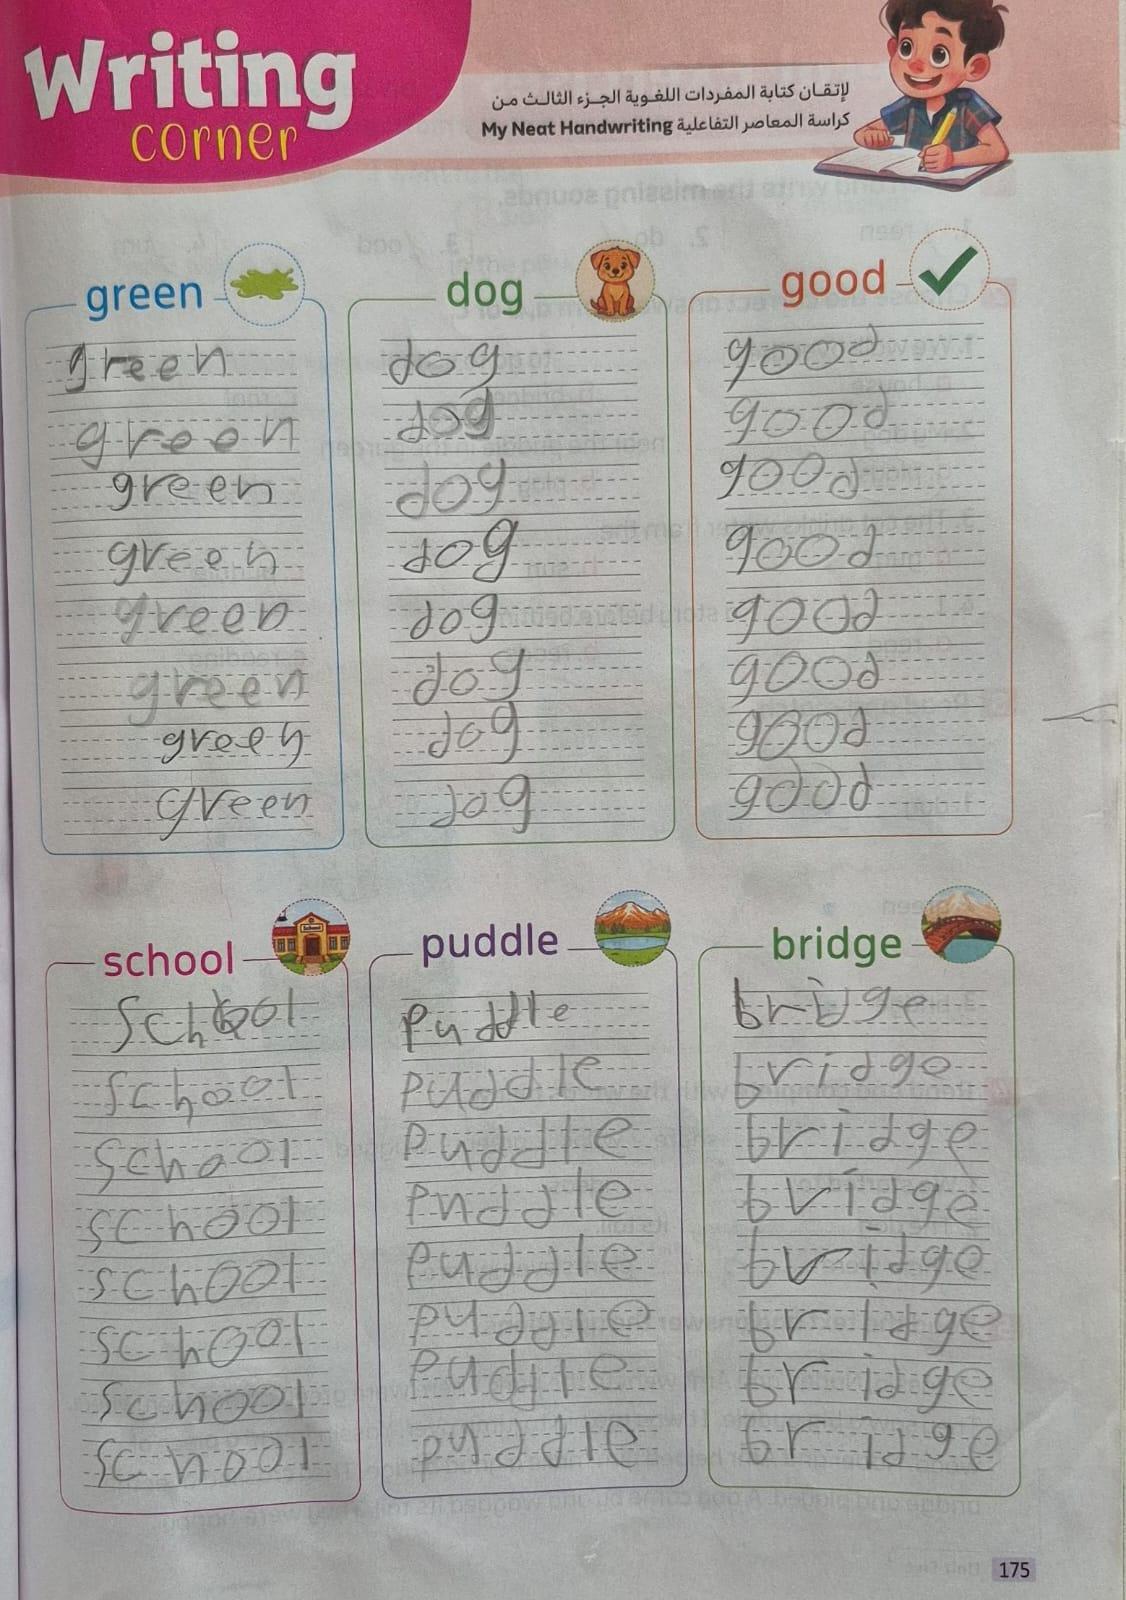 Writing
corner
لإتقـان كتابة المفردات اللغـوية الجـزء الثالـث مـن
كراسة المعاصر التفاعلية My Neat Handwriting
green
green
green
green
green
green
green
green
green
dog
dog
dog
dog
dog
dog
dog
dog
dog
good
good
good
good
good
good
good
good
good
school
school
school
school
school
school
school
school
school
puddle
puddle
puddle
puddle
puddle
puddle
puddle
puddle
puddle
bridge
bridge
bridge
bridge
bridge
bridge
bridge
bridge
bridge
175